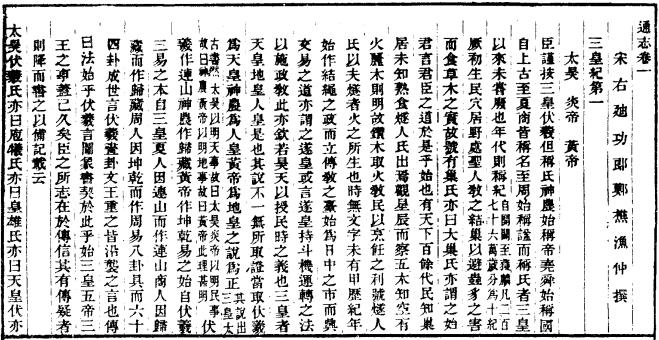 通志卷一
宋右廸功郎鄭樵漁仲撰
三皇紀第一
太昊　炎帝　黃帝
臣謹按三皇伏羲但稱氏神農始稱帝堯舜始稱國
自上古至夏商皆稱名至周始稱諡而稱氏者三皇
以來未嘗廢也年代則稱紀自開闢至獲麟凡二百七十六萬歲分為十紀
厥初生民穴居野處聖人教之結巢以避蟲豸之害
而食草木之實故號有巢氏亦曰大巢氏亦謂之始
君言君臣之道於是乎始也有天下百餘代民知巢
居未知熟食燧人氏出焉觀星辰而察五木知空有
火麗木則明故鑽木取火教民以烹飪之利號燧人
氏以夫燧者火之所生也時無文字未有甲歷紀年
始作結繩之政而立傳教之臺始為日中之市而興
交易之道亦謂之遂皇或言遂皇持斗機運轉之法
以施政教此亦欽若昊天以授民時之義也三皇者
天皇地皇人皇是也其說不一無所取證當取伏羲
為天皇神農為人皇黃帝為地皇之說為正其說出三皇太
古書然太昊以明天事故曰太昊炎帝以明民事故曰神農黃帝以明地事故曰黃帝此理甚明伏
羲作連山神農作歸藏黃帝作坤乾易之始自伏羲
三易之本自三皇夏人因連山而作連山商人因歸
藏而作歸藏周人因坤乾而作周易八卦具而六十
四卦成世言伏羲畫卦文王重之皆沿襲之言也傳
曰法始乎伏羲言圖象書契於此乎始三皇五帝三
王之事蓋已久矣臣之所志在於傳信其有傳疑者
則降而書之以備記載云
太昊伏羲氏亦曰庖犧氏亦曰皇雄氏亦曰天皇伏亦